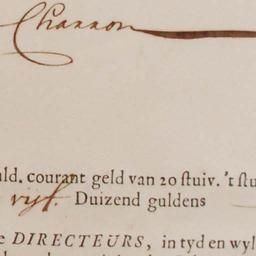 Channon
uld. courant geld van 20 ſtuiv. 't ſtu
vijf. Duizend guldens
e DIRECTEURS, in tyd en wyl